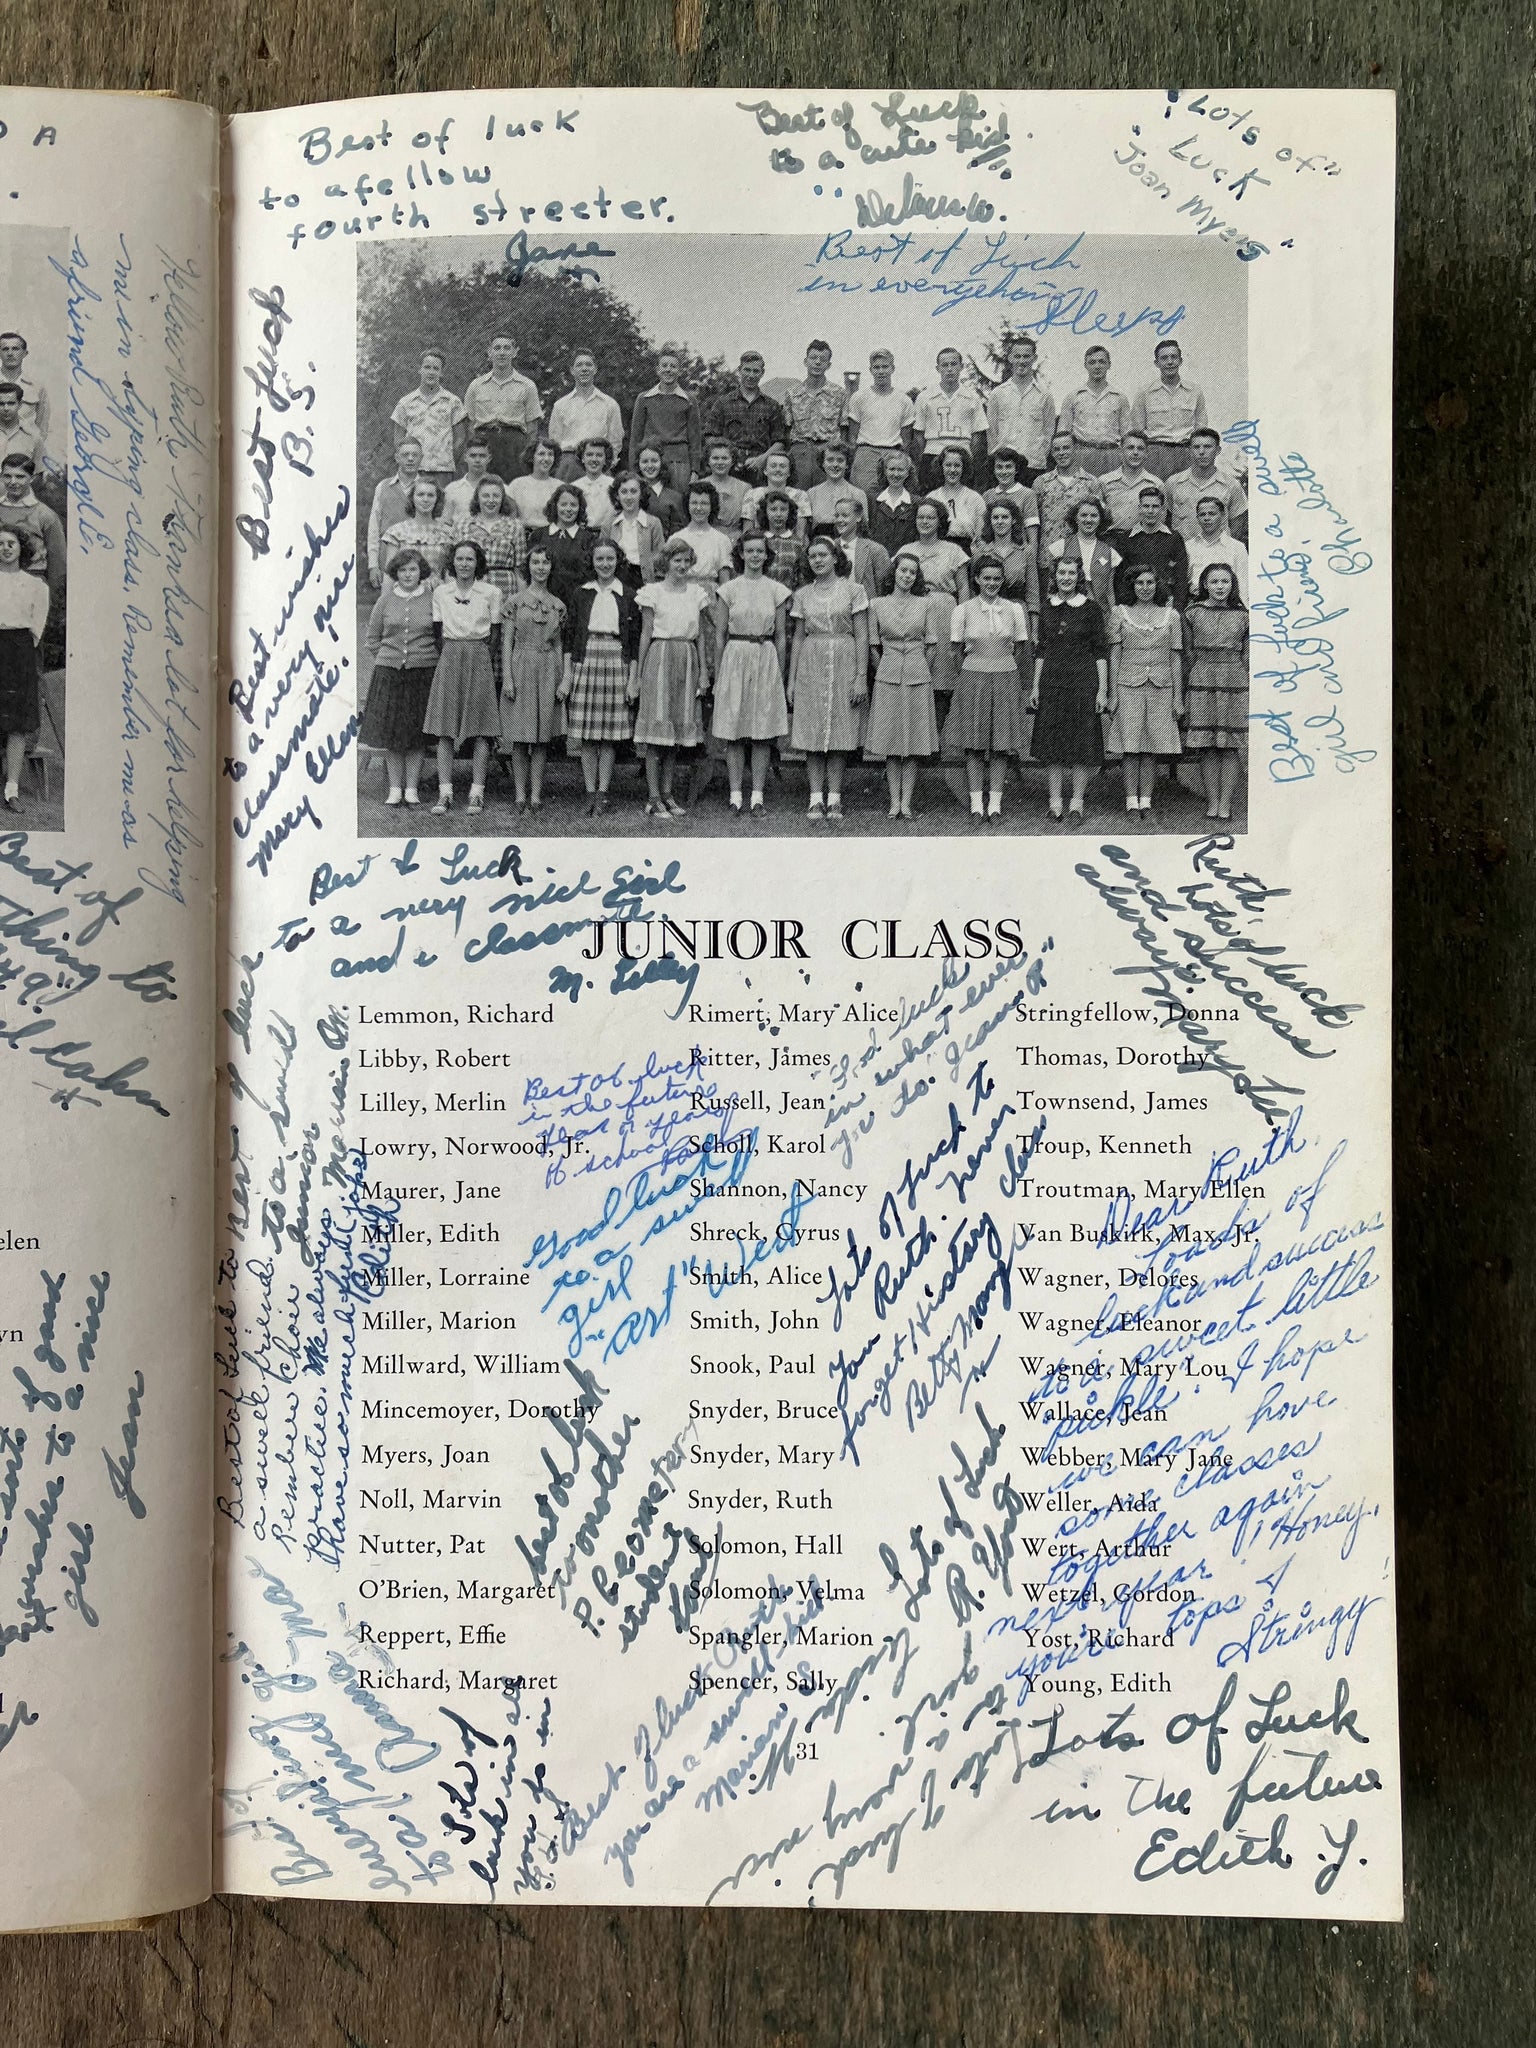 D A
Yellow Ruth: Thanks a lot for helping
me in typing class. Remember me as
a friend Georgie.
Best of
thing
49.
to
elen
of
to a nice
girl
Jean
Best of luck
to a fellow
fourth streeter.
Jane
Best of Luck
to a cute kid
Delores W.
"Lots of"
Luck
"Joan Myers"
Best of Luck
in everything
Best Luck
B. S.
Best wishes
to a very nice
classmate.
Mary Ellen
Best of luck to a swell
girl and friend,
Charlotte
Best of Luck
to a very nice girl
and a classmate.
M. Lilley
Ruth,
lots of luck
and success
always.
Mary Lou
JUNIOR CLASS
Lemmon, Richard
Libby, Robert
Lilley, Merlin
Lowry, Norwood, Jr.
Maurer, Jane
Miller, Edith
Miller, Lorraine
Miller, Marion
Millward, William
Mincemoyer, Dorothy
Myers, Joan
Noll, Marvin
Nutter, Pat
O'Brien, Margaret
Reppert, Effie
Richard, Margaret
Rimert, Mary Alice
Ritter, James
Russell, Jean
Scholl, Karol
Shannon, Nancy
Shreck, Cyrus
Smith, Alice
Smith, John
Snook, Paul
Snyder, Bruce
Snyder, Mary
Snyder, Ruth
Solomon, Hall
Solomon, Velma
Spangler, Marion
Spencer, Sally
Stringfellow, Donna
Thomas, Dorothy
Townsend, James
Troup, Kenneth
Troutman, Mary Ellen
Van Buskirk, Max, Jr.
Wagner, Delores
Wagner, Eleanor
Wagner, Mary Lou
Wallace, Jean
Webber, Mary Jane
Weller, Aida
Wert, Arthur
Wetzel, Gordon
Yost, Richard
Young, Edith
31
Best of luck
in the future
year or years
of school
Good luck
to a swell
girl
"Art" Wert
Good luck
in what ever
you do.
Jean R
Lots of luck to
you Ruth. Never
forget History class.
Betty
Best of luck to
a swell friend. to a swell
Remember choir Junior
practice. Me always. Marion M.
Best of Luck to Best of luck
have so much fun (jokes)
Edith
best of luck
to another
P. P. Geometery
student
Dear Ruth,
Loads of
luck and success
to a sweet little
pickle. I hope
we can have
some classes
together again
next year, Honey.
you're tops!
Stringy
Lots of Luck
R. Yost
Best of luck Ruth
you are a swell kid.
Marian S.
Lots of
luck in all
you do in
Lots of luck
to a
girl.
Lots of Luck
in the future
Edith Y.